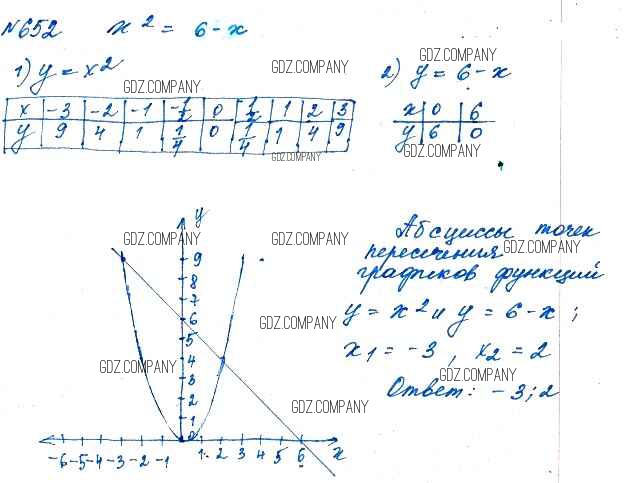 №652 x² = 6 - x
1) y = x²
GDZ.COMPANY
GDZ.COMPANY
2) y = 6 - x
GDZ.COMPANY
x -3 -2 -1 -1/2 0 1/2 1 2 3
y 9 4 1 1/4 0 1/4 1 4 9
GDZ.COMPANY
GDZ.COMPANY
x 0 6
y 6 0
GDZ.COMPANY
y
GDZ.COMPANY
GDZ.COMPANY
Абсциссы точек
пересечения GDZ.COMPANY
графиков функций
y = x² и y = 6 - x;
x₁ = -3, x₂ = 2
GDZ.COMPANY
Ответ: -3; 2
9
8
7
6
GDZ.COMPANY
5
4
GDZ.COMPANY
3
2
1
GDZ.COMPANY
0
-6 -5 -4 -3 -2 -1 1 2 3 4 5 6 x